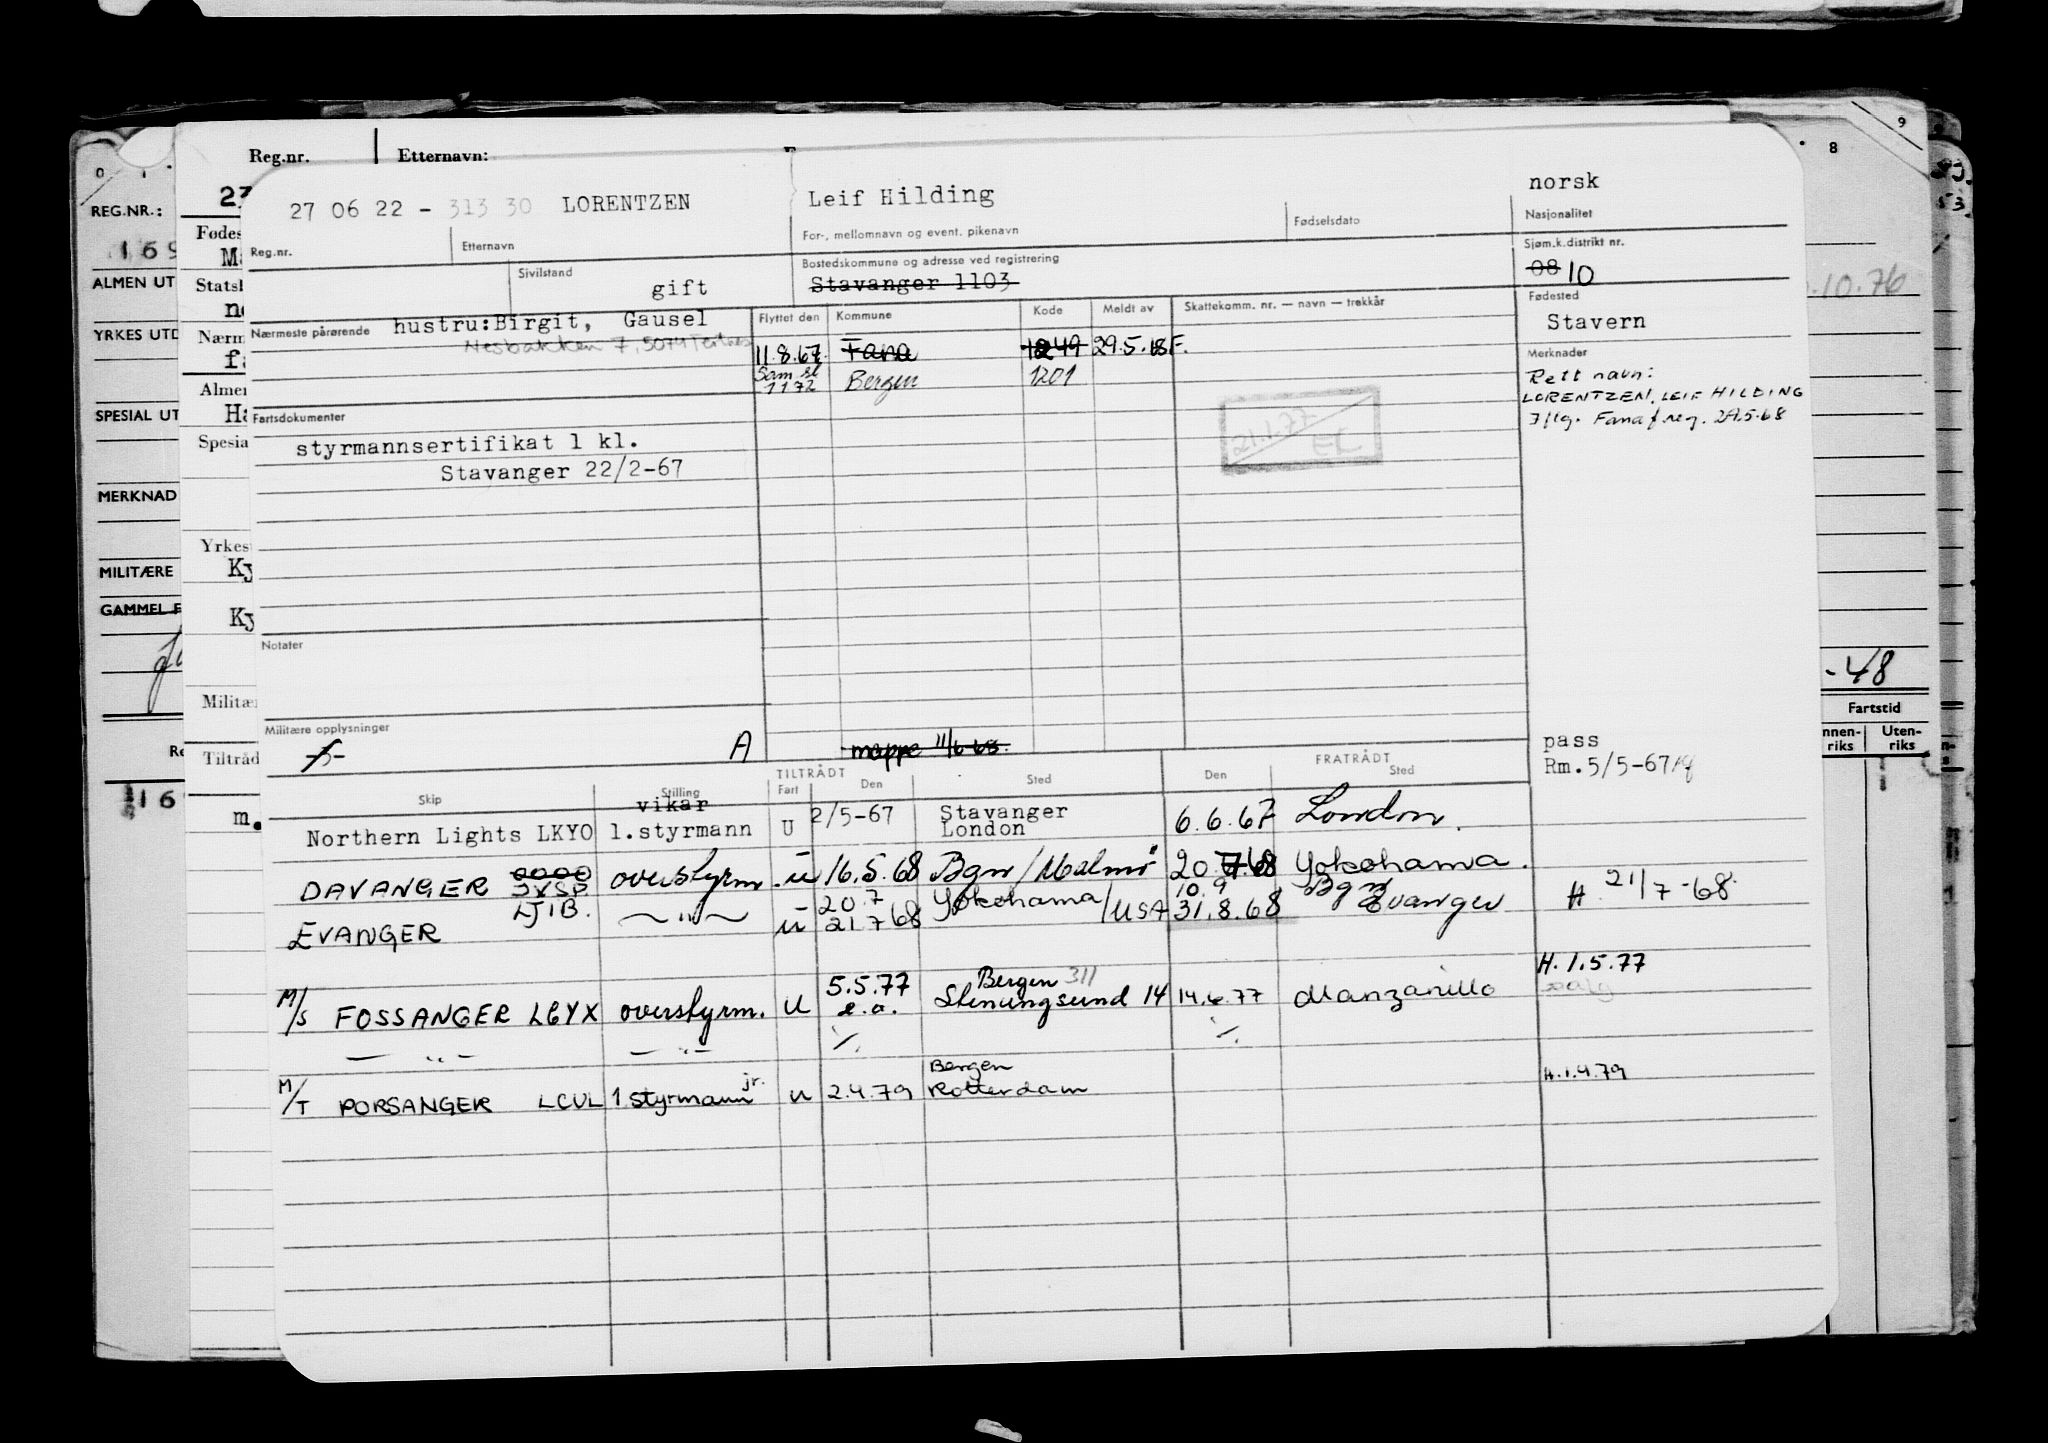 Reg.nr. Etternavn:
27 06 22 - 313 30 LORENTZEN Leif Hilding norsk
Reg.nr. Etternavn For-, mellomnavn og event. pikenavn Fødselsdato Nasjonalitet
Sivilstand gift Bostedskommune og adresse ved registrering Sjøm.k.distrikt nr.
Stavanger 1103 08 10
Nærmeste pårørende hustru: Birgit, Gausel Flyttet den Kommune Kode Meldt av Skattekomm. nr. — navn — trekkår Fødested
Stavern
Nesbakken 7, 5074 Tertnes
11.8.67. Fana 1249 29.5.68 F.
1172 Bergen 1201
Merknader
Rett navn:
LORENTZEN, LEIF HILDING
Iflg. Fana f.reg. 29.5.68
21.1.77
EL
Fartsdokumenter
styrmannsertifikat 1 kl.
Stavanger 22/2-67
Notater
Militære opplysninger
A mappe 11/6-68.
pass
Rm. 5/5-67
TILTRÅDT FRATRÅDT
Skip Stilling Fart Den Sted Den Sted
Northern Lights LKYO vikar 1.styrmann U 2/5-67 Stavanger London 6.6.67 London.
DAVANGER JXSP overstyrm. u 16.5.68 Bgn/Malmö 20.7.68 Yokohama.
EVANGER LJIB. — " — u 20.7 21.7.68 Yokohama/USA 10.9 31.8.68 Bgn Evanger H. 21/7-68.
M/S FOSSANGER LGYX overstyrm. U 5.5.77 e.a. Bergen 311 Stenungsund 14 14.6.77 Manzanillo H. 1.5.77
— " — — " — ·/. ·/.
M/T PORSANGER LCUL 1.styrmann jr. u 2.4.79 Bergen Rotterdam H. 1.4.79
REG.NR.:
169
ALMEN UT
YRKES UTD
SPESIAL UT
MERKNAD
MILITÆRE
GAMMEL F
23
Fødes
Ma
Stats
Nærm
Almen
Ha
Spesia
Yrkes
Ky
Ky
Militæ
Tiltråd
m.
16
8 9
.10.76
-48
Fartstid
nnen-
riks
Uten-
riks